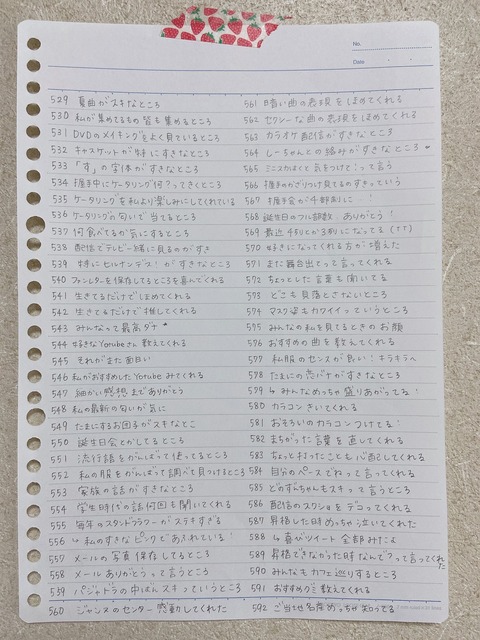 No.
Date
529 夏曲がスキなところ
530 私が集めてるもの皆も集めるところ
531 DVDのメイキングをよく見ているところ
532 キャスケットが特にすきなところ
533 「す」の字体がすきなところ
534 握手中にケータリング何?ってきくところ
535 ケータリングを私より楽しみにしてくれている
536 ケータリングの匂いで当てるところ
537 何食べてるか気にするところ
538 配信でテレビ一緒に見るのがすき
539 特にヒルナンデス!がすきなところ
540 ファンレターを保存してるところを喜んでくれる
541 生きてるだけでほめてくれる
542 生きてるだけで推してくれる
543 みんなって最高ダナ
544 好きなYouTubeさん教えてくれる
545 それがまた面白い
546 私がおすすめしたYouTubeみてくれる
547 細かい感想までありがとう
548 私の最新の匂いが気に
549 たまにするお団子がスキなとこ
550 誕生日会とかしてるところ
551 流行語をがんばって使ってるところ
552 私の服をがんばって調べて見つけるところ
553 家族の話がすきなところ
554 学生時代の話何回も聞いてくれる
555 毎年のスタンドフラワーがステキすぎる
556 ↳私のすきなピンクであふれている!
557 メールの写真保存してるところ
558 メールありがとうって言うところ
559 パジャドラの中ほんスキっていうところ
560 ジャンスのセンター感動してくれた
561 暗い曲の表現をほめてくれる
562 セクシーな曲の表現をほめてくれる
563 カラオケ配信がすきなところ
564 しーちゃんとの絡みがすきなところ
565 ミニスカはくと気をつけてって言う
566 握手のかざりつけ見てるのすきっていう
567 握手会が4部制に…!
568 誕生日のフル部数、ありがとう!
569 最近45ひとが3制になってる(TT)
570 好きになってくれる方が増えた
571 また舞台出てって言ってくれる
572 ちょっとした言葉も聞いてる
573 どこも見落とさないところ
574 マスク姿もカワイイっていうところ
575 みんなの私を見るときのお顔
576 おすすめの曲を教えてくれる
577 私服のセンスが良い!キラキラへ
578 たまにの恋バナがすきなところ
579 ↳みんなめっちゃ盛りあがってる!
580 カラコンきいてくれる
581 おそろいのカラコンつけてる!
582 まちがった言葉を直してくれる
583 ちょっと打ったことも心配してくれる
584 自分のペースでねって言ってくれる
585 どのずんちゃんもスキって言うところ
586 配信のスクショをデコってくれる
587 昇格した時めっちゃ泣いてくれた
588 ↳喜びツイート全部みたよ
589 昇格できなかった時なんで?って言ってくれた
590 みんなもカフェ巡りするところ
591 おすすめグミ教えてくれる
592 ご当地名産めっちゃ知ってる